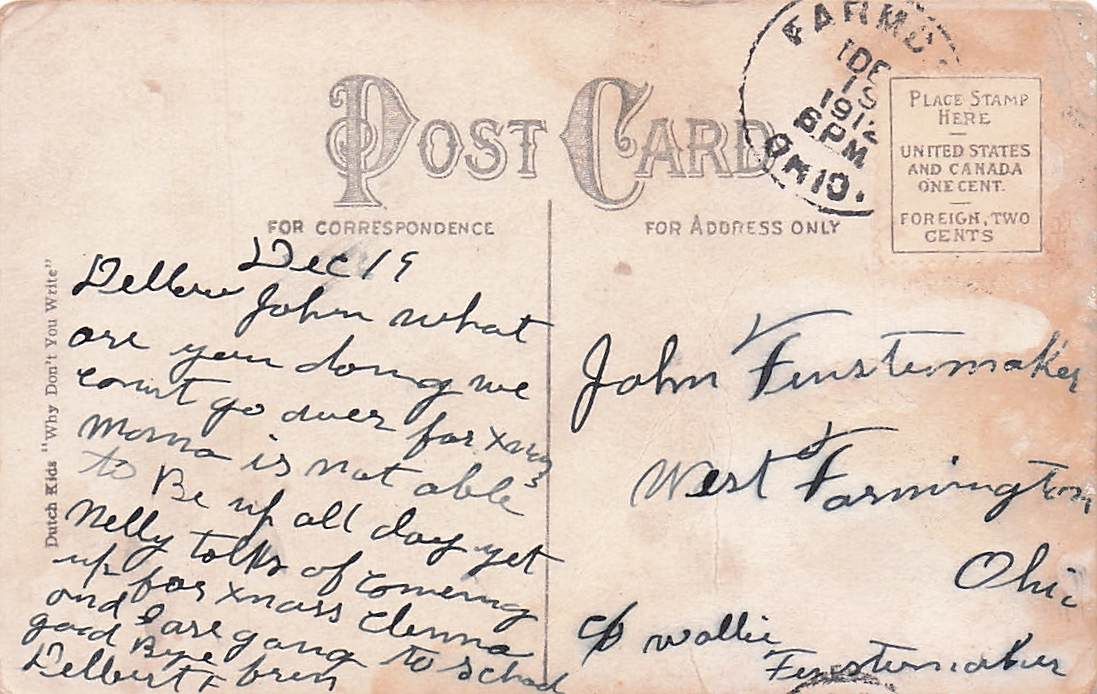 POST CARD
FARMD
DE
19
1912
6PM
OHIO.
PLACE STAMP
HERE
UNITED STATES
AND CANADA
ONE CENT.
FOREIGN, TWO
CENTS
FOR CORRESPONDENCE
FOR ADDRESS ONLY
Dutch Kids "Why Don't You Write"
Dec 19
Hellow John what
are you doing we
cant go over for xmas
Moma is not able
to Be up all day yet
Nelly talks of comeing
up for xmass Clenna
and I are gong to school
good Bye
Delbert F
John Finstermaker
West Farmington
Ohio
c/o Wallie
Finstermaker